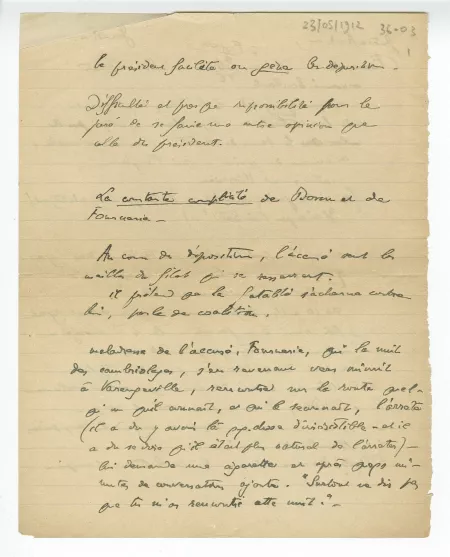 23/05/1912 36-03
1
le président facilite ou gêne les dépositions.
Difficulté et presque impossibilité pour le
juré de se faire une autre opinion que
celle du président.
La constante complicité de et de
Fourcherie -
Au cours des dépositions, l'accusé sent les
mailles du filet qui se resserrent.
il prétend que la fatalité s'acharne contre
lui, parle de coalition.
maladresse de l'accusé, qui la nuit
des cambriolages, s'en revenant vers minuit
à Varengeville, rencontrant sur la route quel-
qu'un qu'il connait, et qui le reconnait, l'arrête
(il a dû y avoir là qq chose d'irrésistible - et il
a dû se dire qu'il était plus naturel de l'arrêter) -
lui demande une cigarette et après qqes mi-
nutes de conversation ajoute : "Surtout ne dis pas
que tu m'as rencontré cette nuit !" -